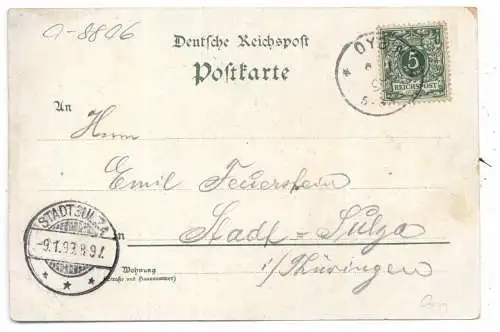 a-8806
Deutsche Reichspost
Postkarte
OYB
5
REICHSPOST
An
Herrn
Emil Feuerstein
STADTSULZA
9.1.99.8-9V.
in Stadt-Sulza
i/Thüringen
Wohnung
(Straße und Hausnummer)